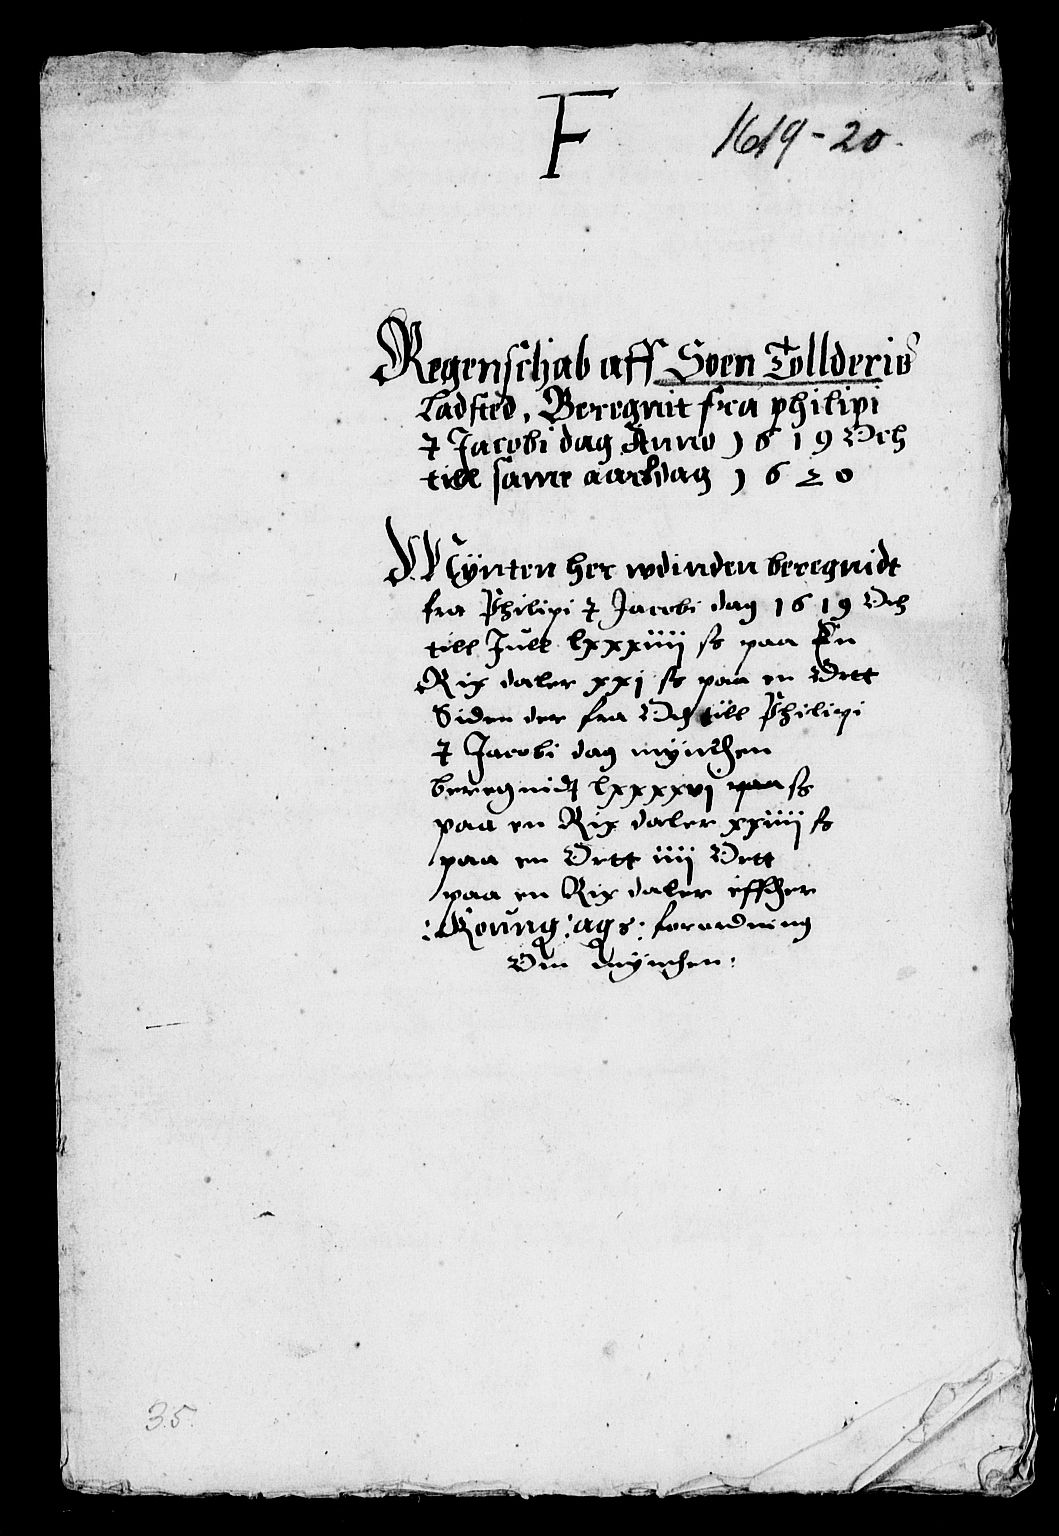 F
1619-20.
Regenschab aff Soen Tollderis
Ladsted, Beregnit fra philipi
& Jacobi dag Anno 1619 Och
till same aarsdag 1620
Mÿnten her wdinden beregnidt
fra Philipi & Jacobi dag 1619 Och
till Jull lxxxiiii ß paa En
Rix daler xxi ß paa en Ortt
Siden der fra Och till Philipi
& Jacobi dag mÿnthen
beregnidt lxxxxvi paa ß
paa en Rix daler xxiiii ß
paa en Ortt iiii Ortt
paa en Rix daler effther
:Koung: ags: forordning
Om mÿnthen:
35.